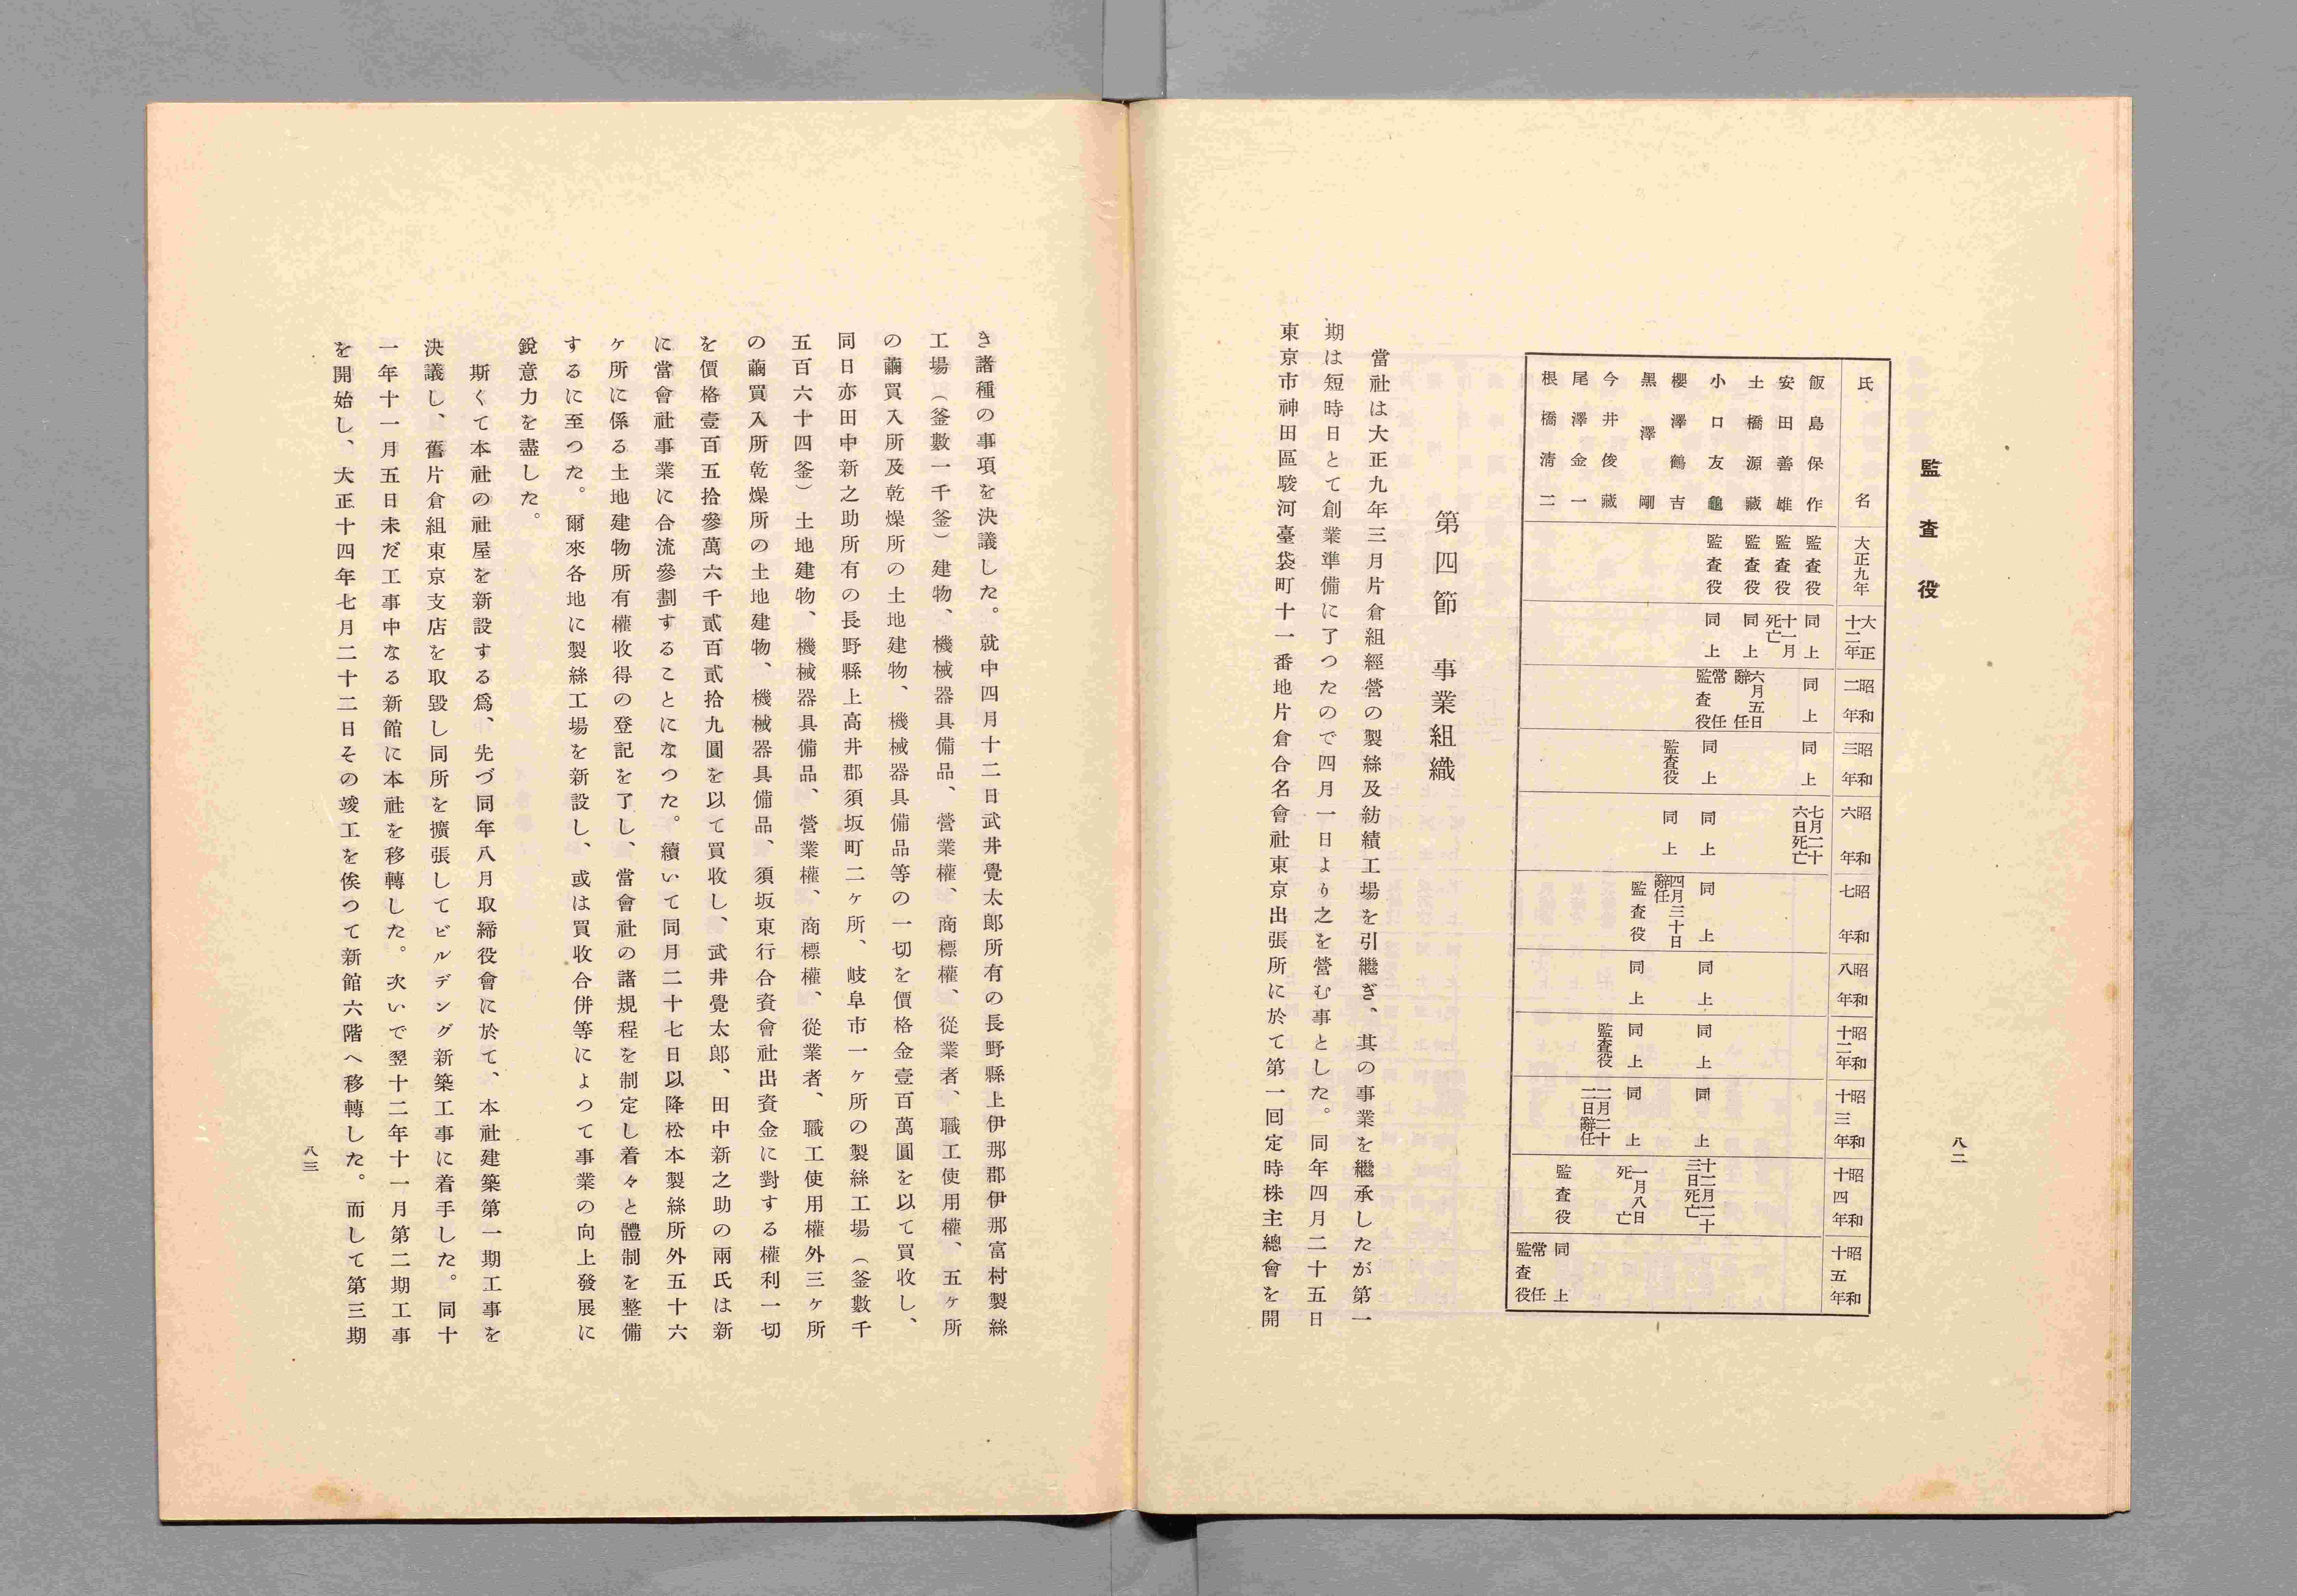 八二
監査役
氏名 大正九年 大正十二年 昭和二年 昭和三年 昭和六年 昭和七年 昭和八年 昭和十二年 昭和十三年 昭和十四年 昭和十五年
飯島保作 監査役 同上 同上 同上 七月二十六日死亡
安田善雄 監査役 十一月死亡
土橋源藏 監査役 同上 六月五日辭任
小口友龜 監査役 同上 常任監査役 同上 同上 同上 同上 同上 同上 十二月二十三日死亡
櫻澤鶴吉 監査役 同上 四月三十日辭任
黑澤剛 監査役 同上 同上 同上 一月八日死亡
今井俊藏 監査役 二月二十二日辭任
尾澤金一 監査役 同上
根橋淸二 常任監査役
第四節 事業組織
當社は大正九年三月片倉組經營の製絲及紡績工場を引繼ぎ、其の事業を繼承したが第一
期は短時日とて創業準備に了つたので四月一日より之を營む事とした。同年四月二十五日
東京市神田區駿河臺袋町十一番地片倉合名會社東京出張所に於て第一回定時株主總會を開
き諸種の事項を決議した。就中四月十二日武井覺太郎所有の長野縣上伊那郡伊那富村製絲
工場（釜數一千釜）建物、機械器具備品、營業權、商標權、從業者、職工使用權、五ヶ所
の繭買入所及乾燥所の土地建物、機械器具備品等の一切を價格金壹百萬圓を以て買收し、
同日亦田中新之助所有の長野縣上高井郡須坂町二ヶ所、岐阜市一ヶ所の製絲工場（釜數千
五百六十四釜）土地建物、機械器具備品、營業權、商標權、從業者、職工使用權外三ヶ所
の繭買入所乾燥所の土地建物、機械器具備品、須坂東行合資會社出資金に對する權利一切
を價格壹百五拾參萬六千貳百貳拾九圓を以て買收し、武井覺太郎、田中新之助の兩氏は新
に當會社事業に合流參劃することになつた。續いて同月二十七日以降松本製絲所外五十六
ヶ所に係る土地建物所有權收得の登記を了し、當會社の諸規程を制定し着々と體制を整備
するに至つた。爾來各地に製絲工場を新設し、或は買收合併等によつて事業の向上發展に
銳意力を盡した。
斯くて本社の社屋を新設する爲、先づ同年八月取締役會に於て、本社建築第一期工事を
決議し、舊片倉組東京支店を取毀し同所を擴張してビルデング新築工事に着手した。同十
一年十一月五日未だ工事中なる新館に本社を移轉した。次いで翌十二年十一月第二期工事
を開始し、大正十四年七月二十二日その竣工を俟つて新館六階へ移轉した。而して第三期
八三